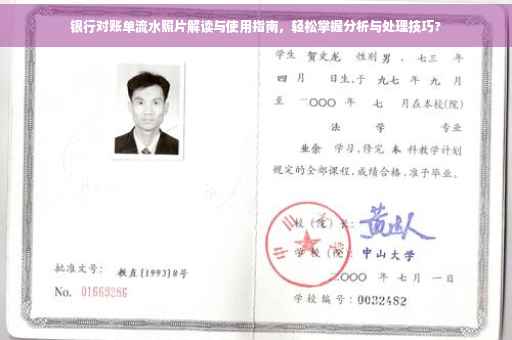 银行对账单流水照片解读与使用指南，轻松掌握分析与处理技巧？
学生 贺文龙 性别 男 ，七三 年
四 月 日生，于 九七 年 九 月
至 二〇〇〇 年 七 月在本校(院)
法 学 专业
业余 学习，修完 本 科教学计划
规定的全部课程，成绩合格，准予毕业。
校（院）长：
学校（院）：中山大学
批准文号：教直(1993)8号
二〇〇〇 年 七 月 一 日
No. 01669286
学校编号：0032482